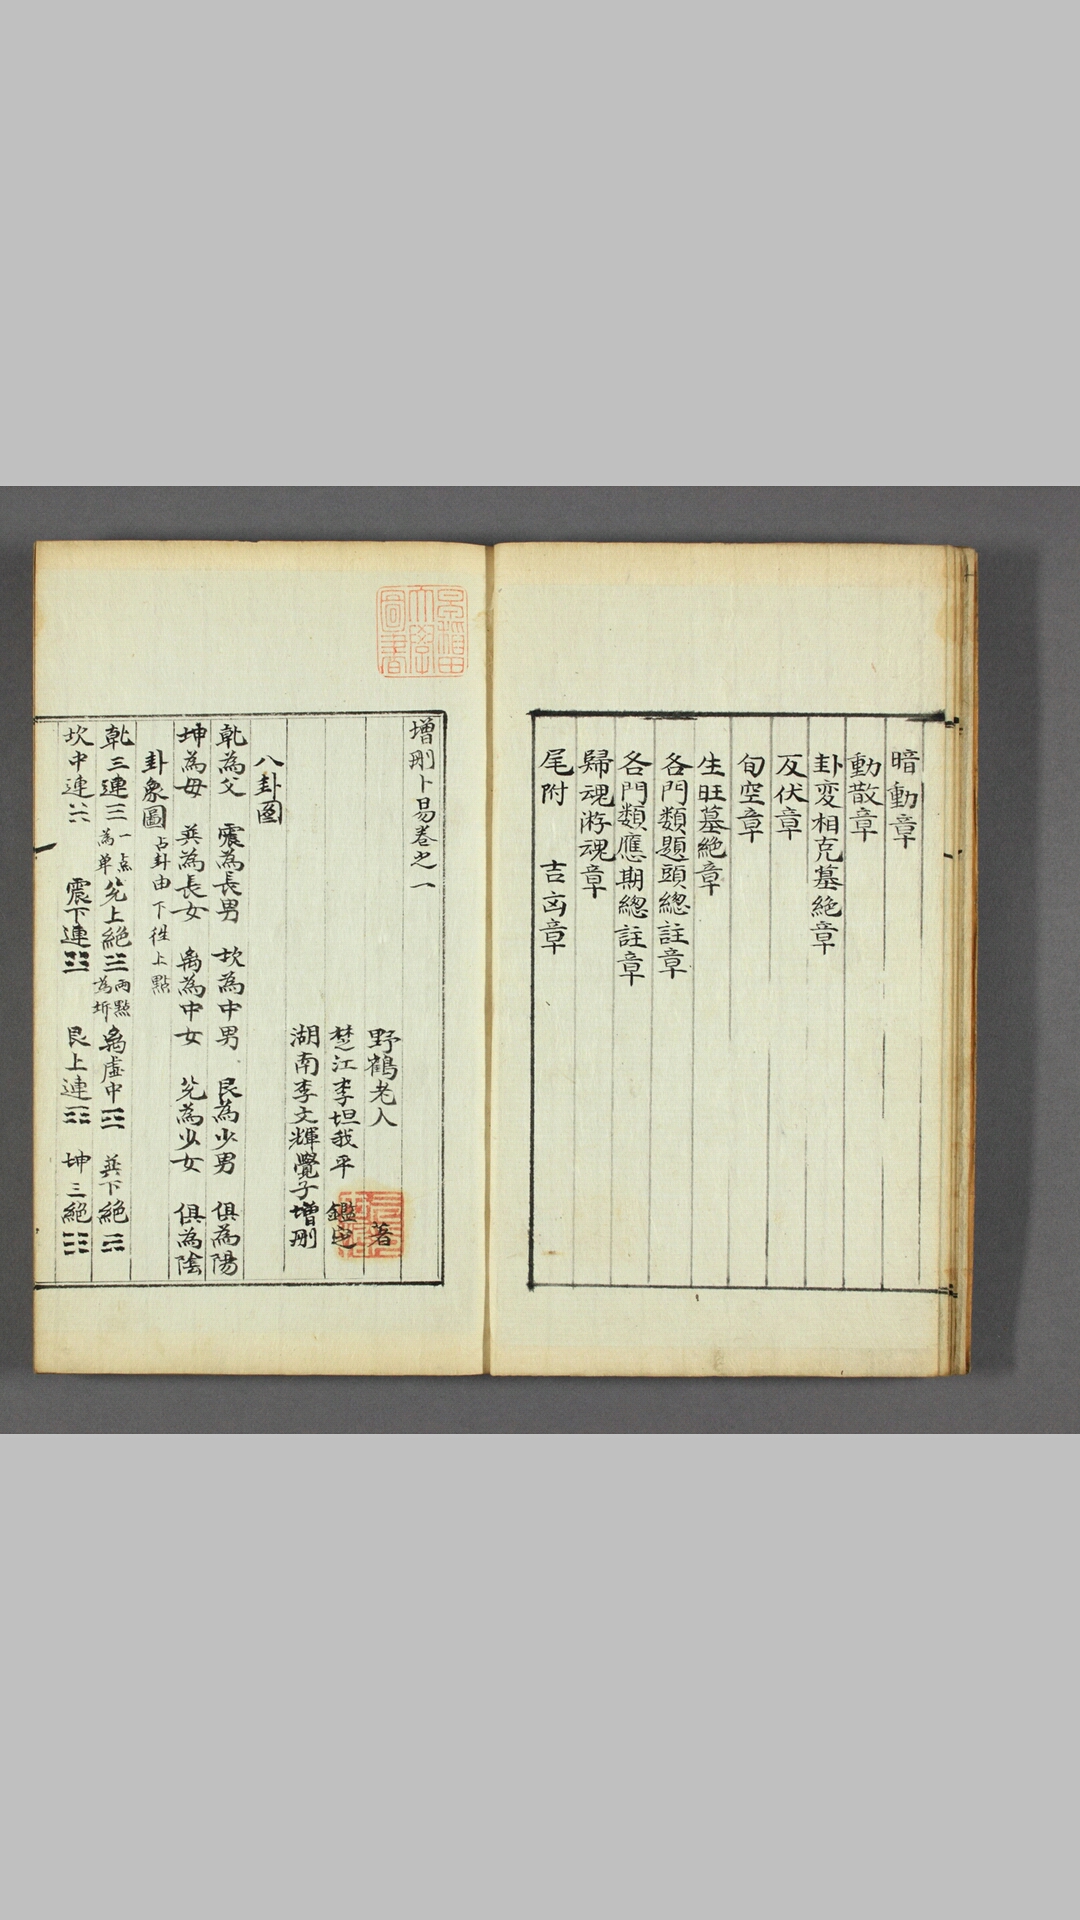 暗動章
動散章
卦変相克墓絶章
反伏章
旬空章
生旺墓絶章
各門類題頭總註章
各門類應期總註章
歸魂游魂章
尾附 吉凶章
増刪卜易卷之一
野鶴老人 著
楚江李坦我平 鑑定
湖南李文輝覺子増刪
八卦圖
乹為父 震為長男 坎為中男 艮為少男 俱為陽
坤為母 巽為長女 离為中女 兊為少女 俱為陰
卦象圖 占卦由下徃上點
乹三連☰ 一点為单 兊上絕☱ 兩點為坼 离虚中☲ 巽下絕☴
坎中連☵ 震下連☳ 艮上連☶ 坤三絕☷